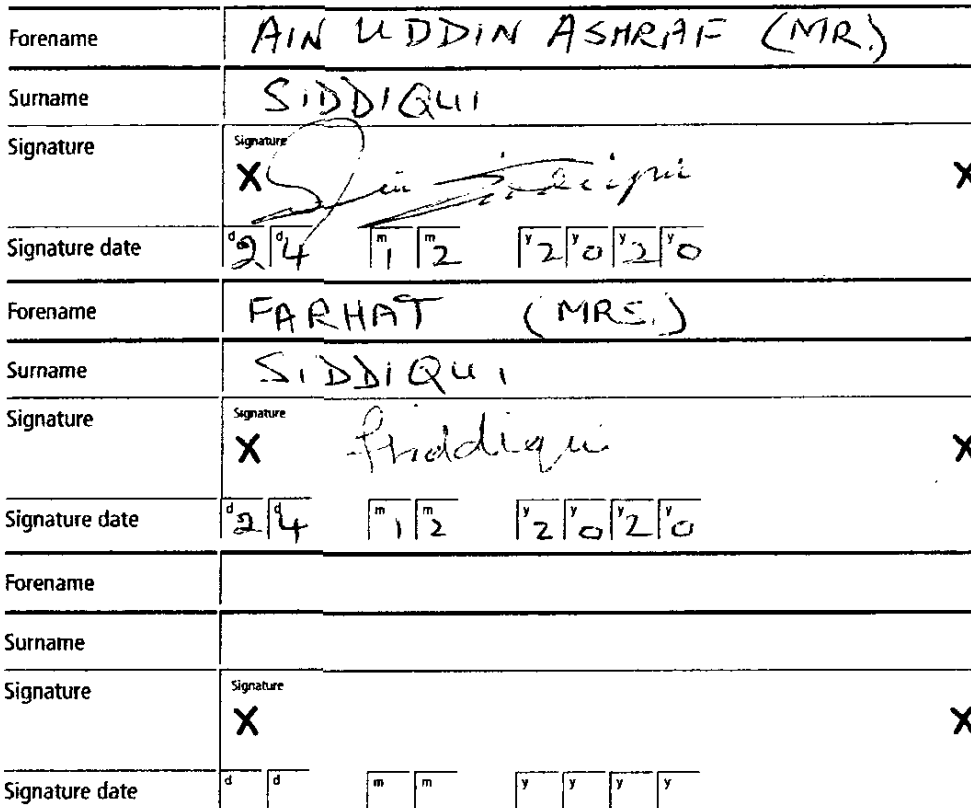 Forename AIN UDDIN ASHRAF (MR.)
Surname SIDDIQUI
Signature Signature X X
Signature date d2 d4 m1 m2 y2 y0 y2 y0
Forename FARHAT (MRS.)
Surname SIDDIQUI
Signature Signature X FSiddiqui X
Signature date d2 d4 m1 m2 y2 y0 y2 y0
Forename
Surname
Signature Signature X X
Signature date d d m m y y y y